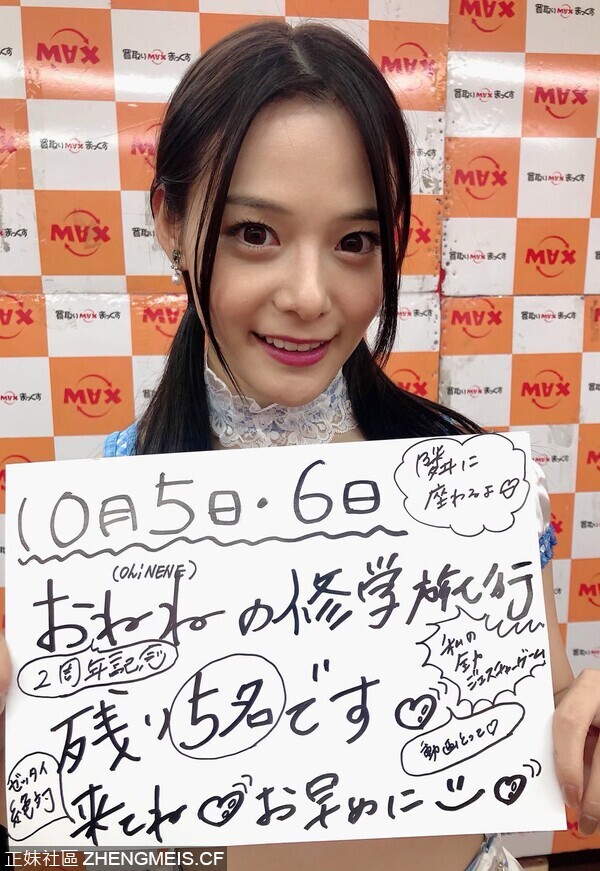 MAX
買取りMAXまっくす
隣に
座わるよ♡
10月5日・6日
(Oh! NENE)
おねねの修学旅行
2周年記念
私の
ジェスチャーゲーム
残り5名です
動画とって♡
ゼッタイ
絶対
来てね♡お早めに
正妹社區 ZHENGMEIS.CF